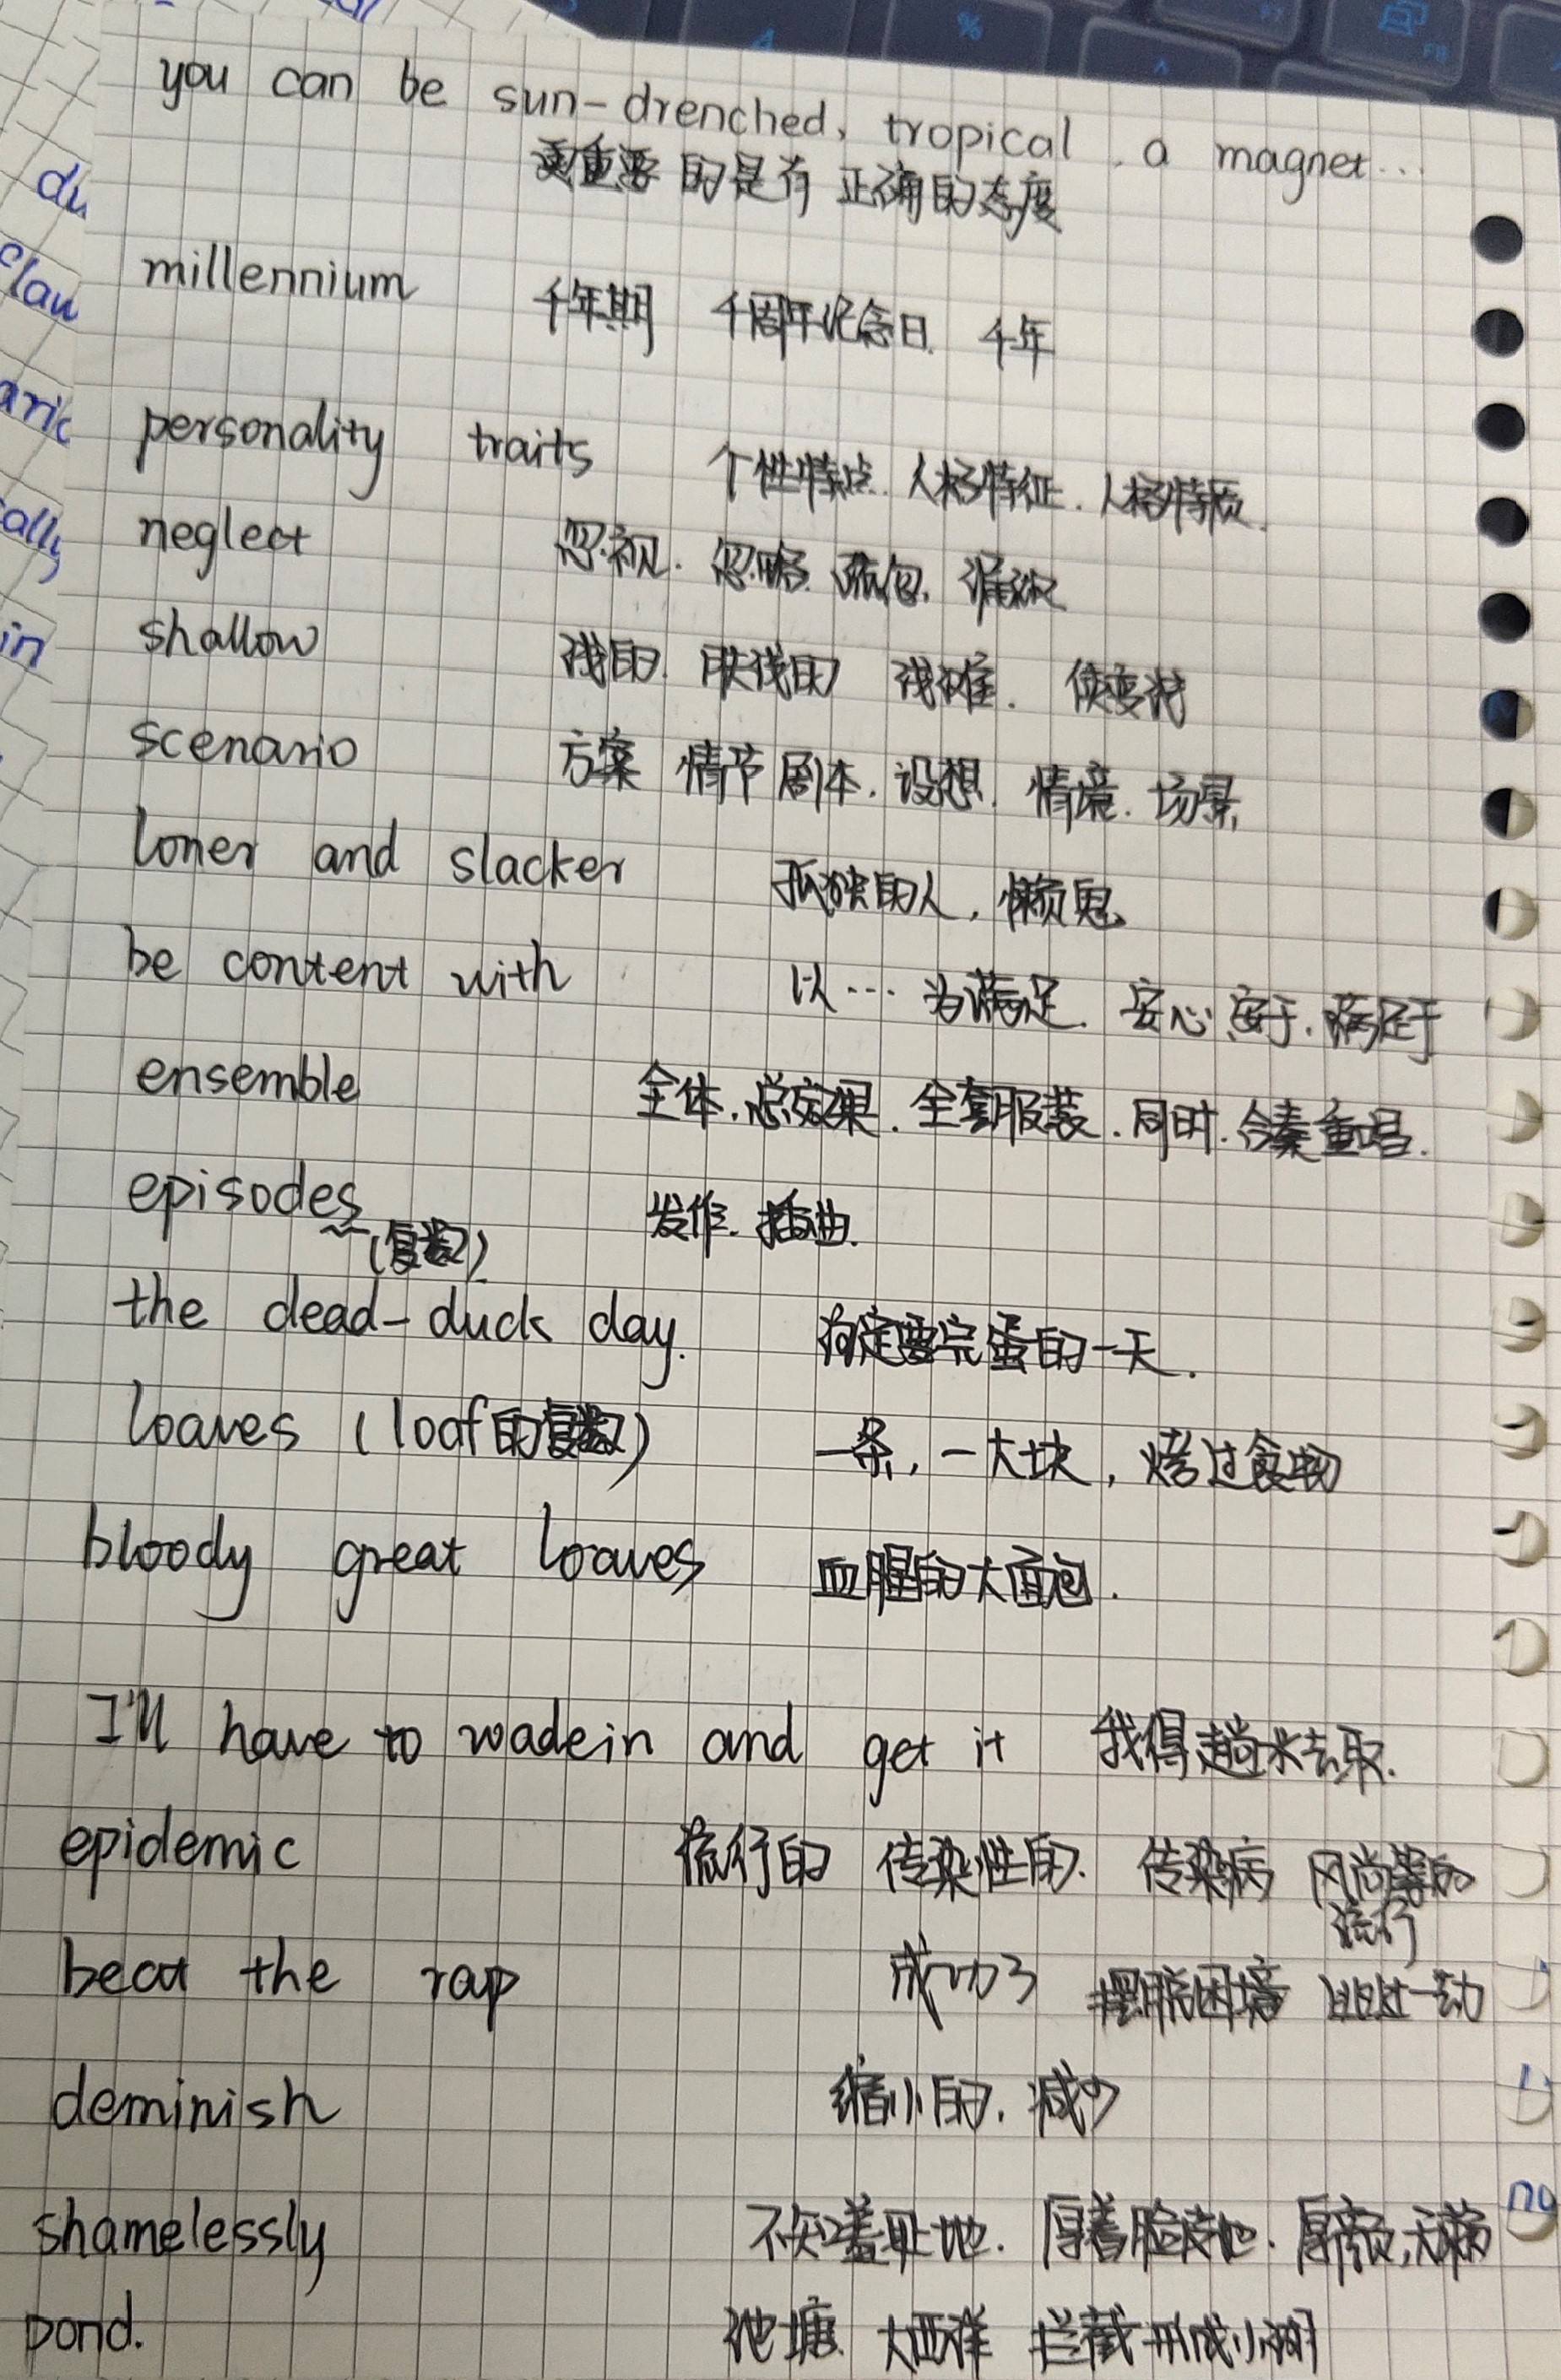 you can be sun-drenched, tropical, a magnet...
更重要的是有正确的态度
millennium 千年期 千周年纪念日 千年
personality traits 个性特点. 人格特征. 人格特质.
neglect 忽视. 忽略. 疏忽. 漏做
shallow 浅的. 肤浅的 浅滩. 使变浅
scenario 方案 情节 剧本. 设想. 情境. 场景.
loner and slacker 孤独的人, 懒鬼
be content with 以…为满足. 安心 安于. 满足于
ensemble 全体. 总效果. 全套服装. 同时. 合奏 重唱.
episodes 发作. 插曲.
(复数)
the dead-duck day. 肯定要完蛋的一天.
loaves (loaf的复数) 一条, 一大块, 烤过食物
bloody great loaves 血腥的大面包.
I'll have to wadein and get it 我得趟水去取.
epidemic 流行的 传染性的. 传染病 风尚等的
流行
beat the rap 成功了 摆脱困境 逃过一劫
deminish 缩小的. 减少
shamelessly 不知羞耻地. 厚着脸皮地. 厚颜无赖
pond. 池塘 大西洋 拦截 形成小湖
du
clau
aric
cally
in
no